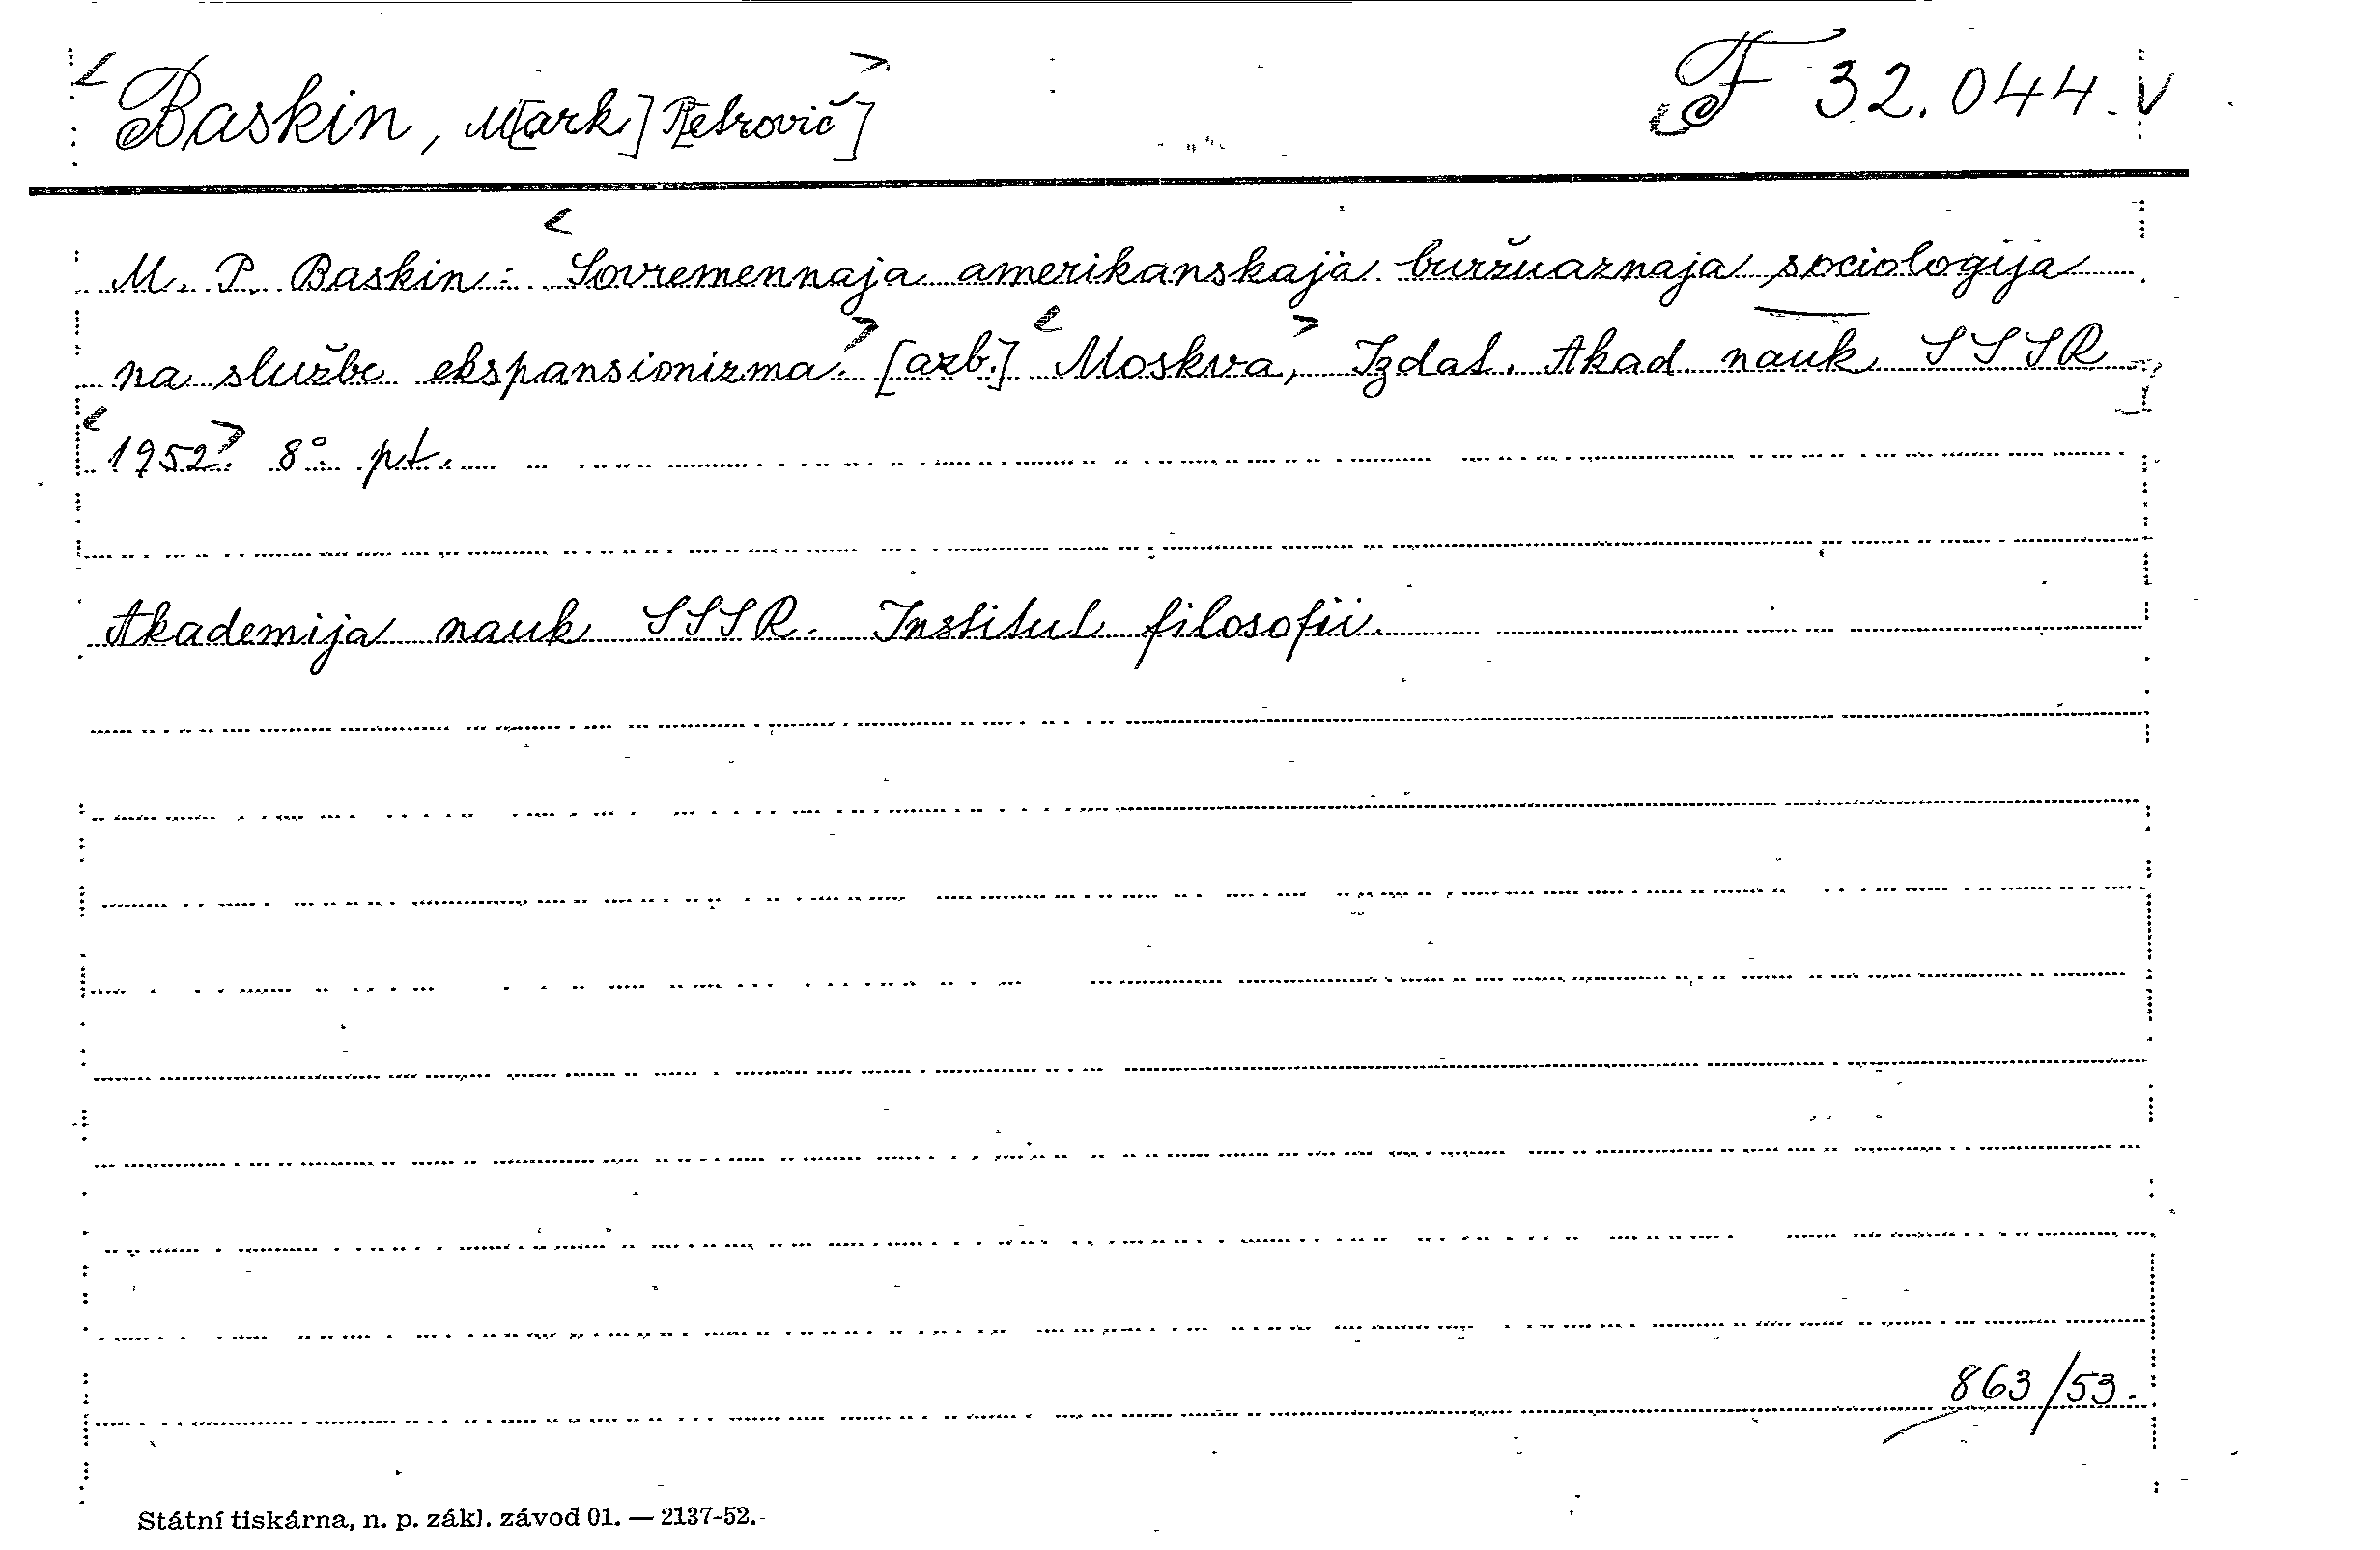 <Baskin, M[ark] P[etrovič]> F 32.044.V
M. P. Baskin: <Sovremennaja amerikanskaja buržuaznaja sociologija
na službe ekspansionizma.> [azb.] <Moskva,> Izdat. Akad. nauk SSSR
<1952.> 8° pt.
Akademija nauk SSSR. Institut filosofii.
863/53.
Státní tiskárna, n. p. zákl. závod 01. — 2137-52.